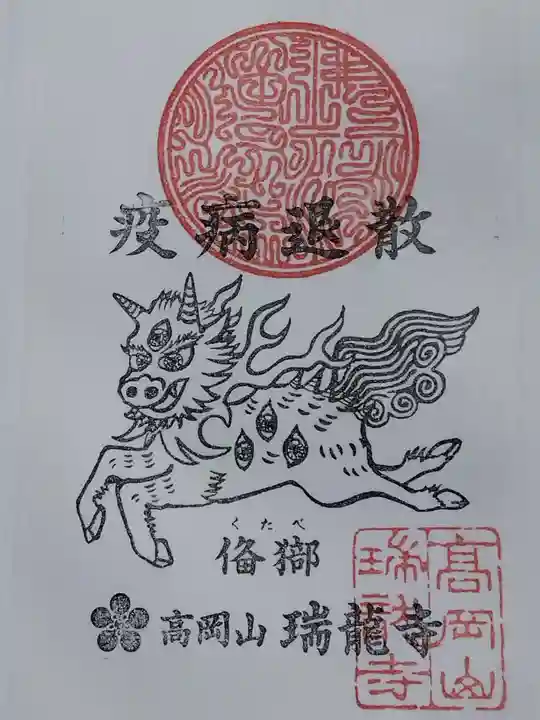 疫病退散
くたべ
俻獬
高岡山 瑞龍寺
高岡山
瑞龍寺